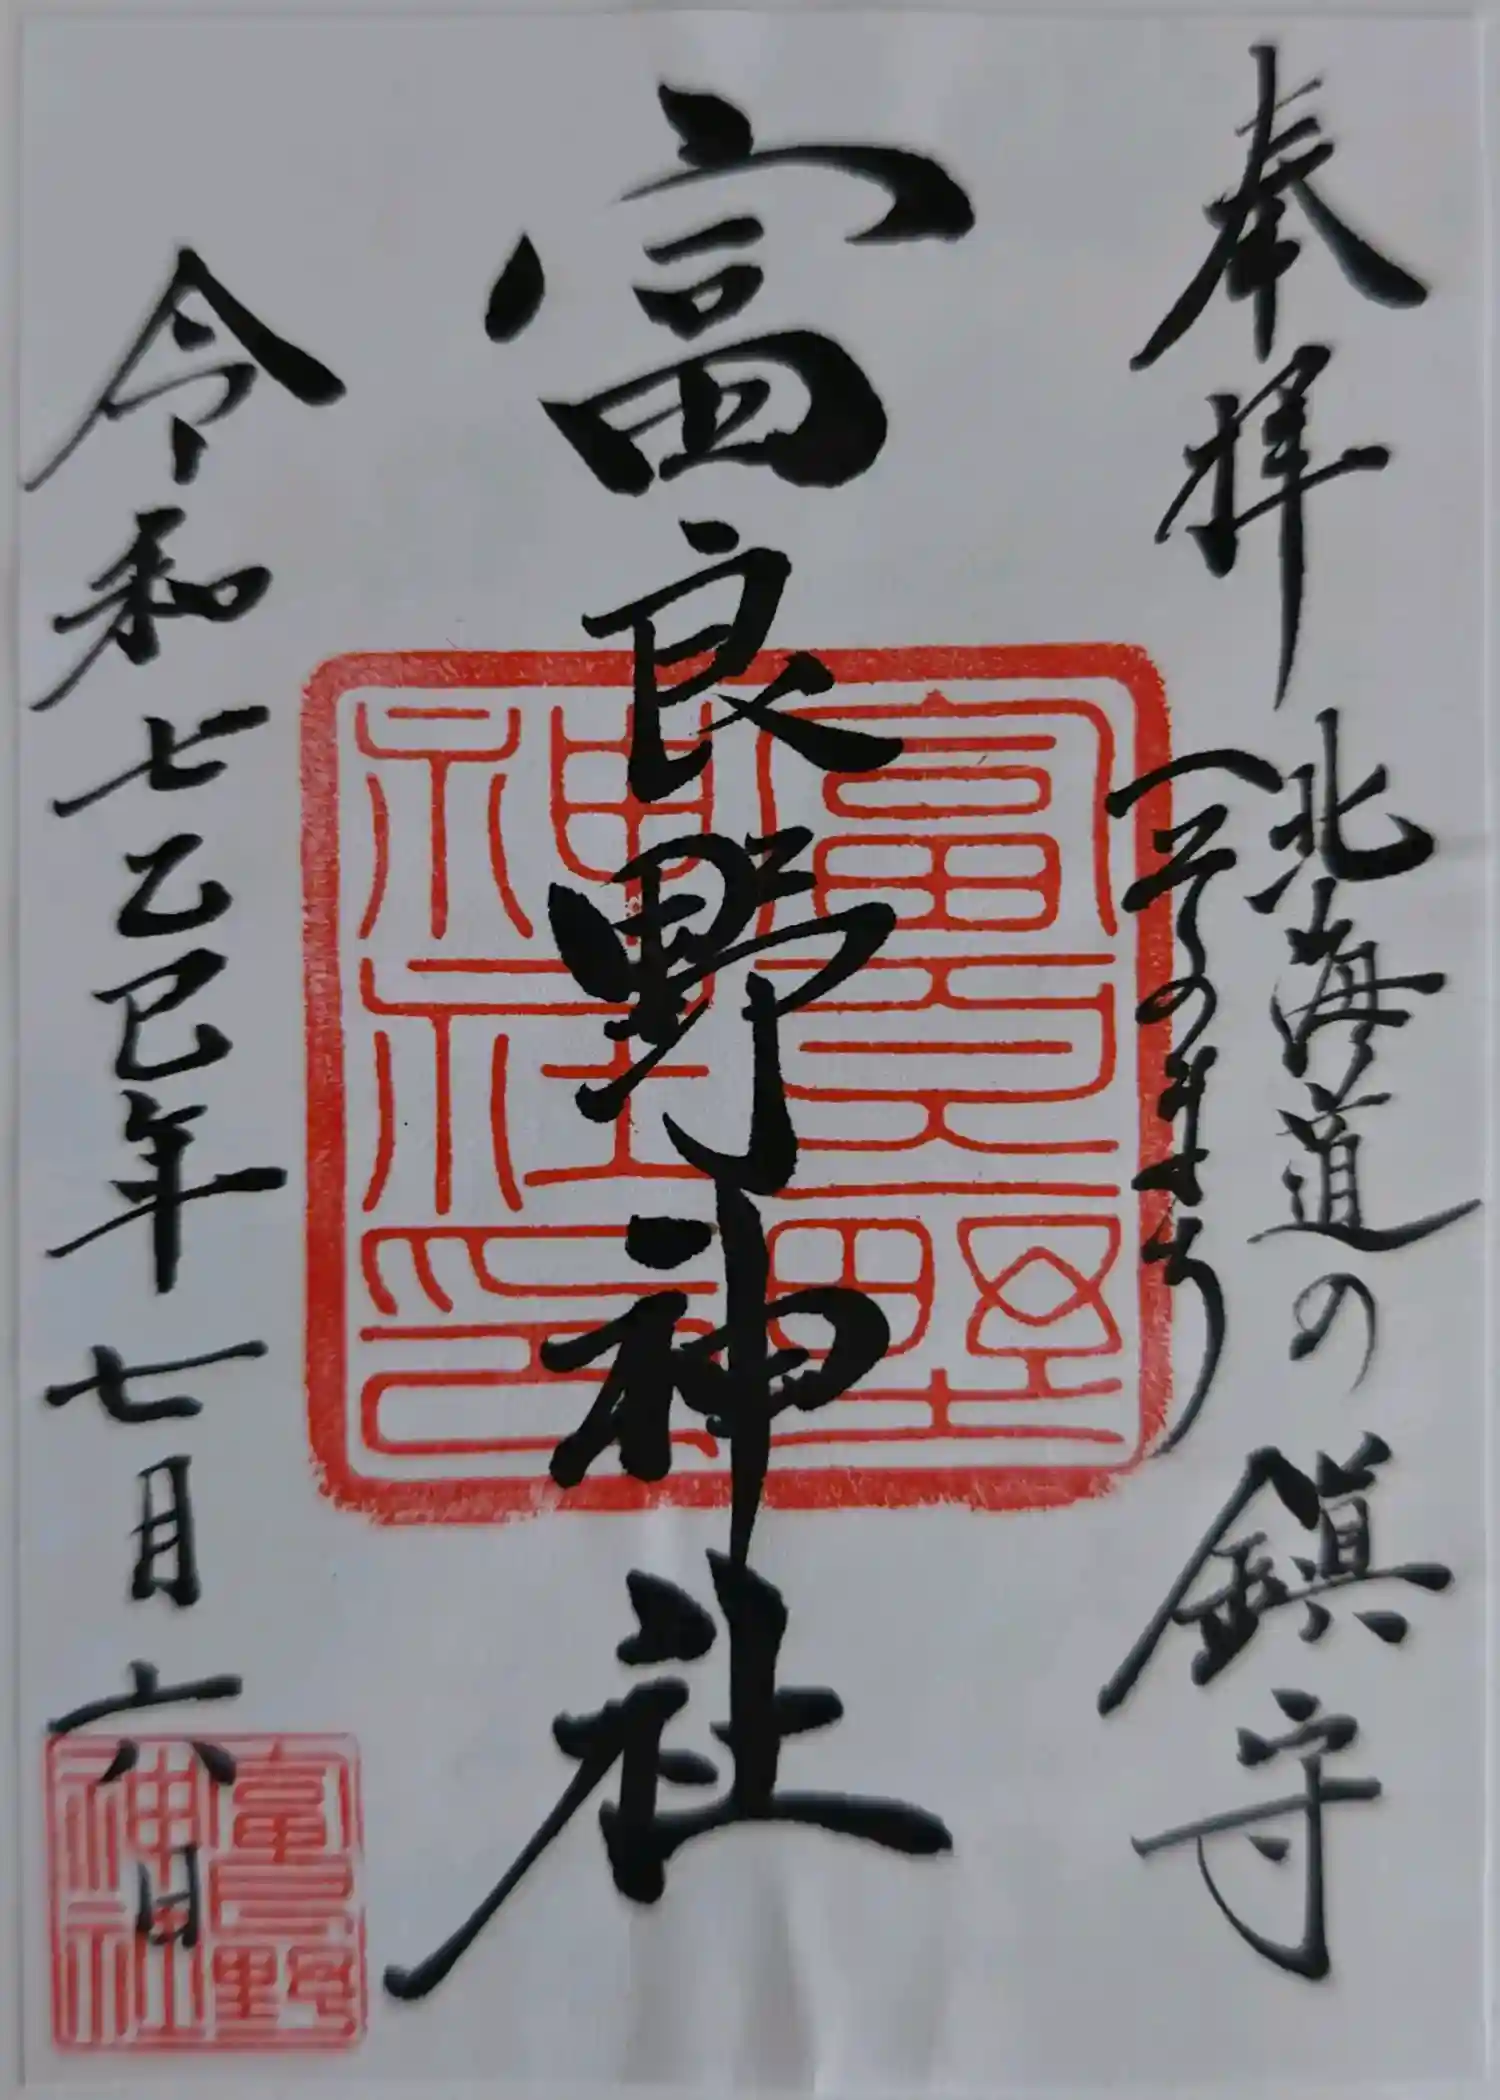 奉拝
北海道の
へそのまち
鎮守
富良野神社
富良野
神社印
令和七乙巳年七月六日
富良野
神社